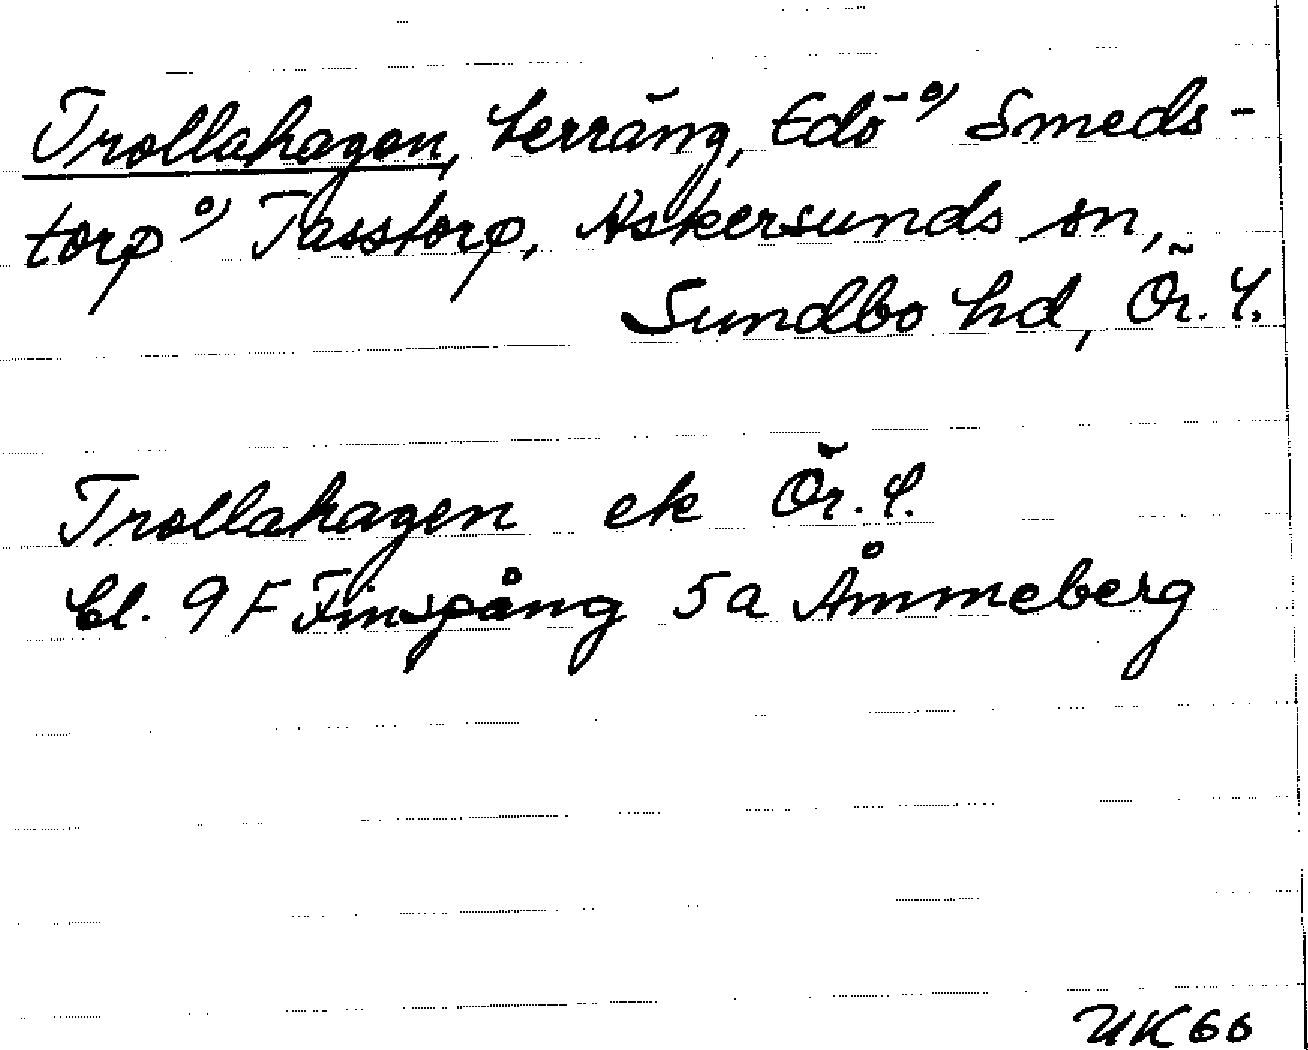 Trollahagen, terräng, Edö o/ Smeds-
torp o/ Tasstorp, Askersunds sn,
Sundbo hd, Ör. l.
Trollahagen ek Ör. l.
bl. 9 F Finspång 5a Åmmeberg
UK 66